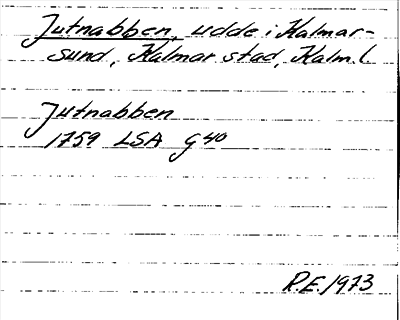 Jutnabben, udde i Kalmar-
sund, Kalmar stad, Kalm. l.
Jutnabben
1759 LSA G 40
R.E. 1973